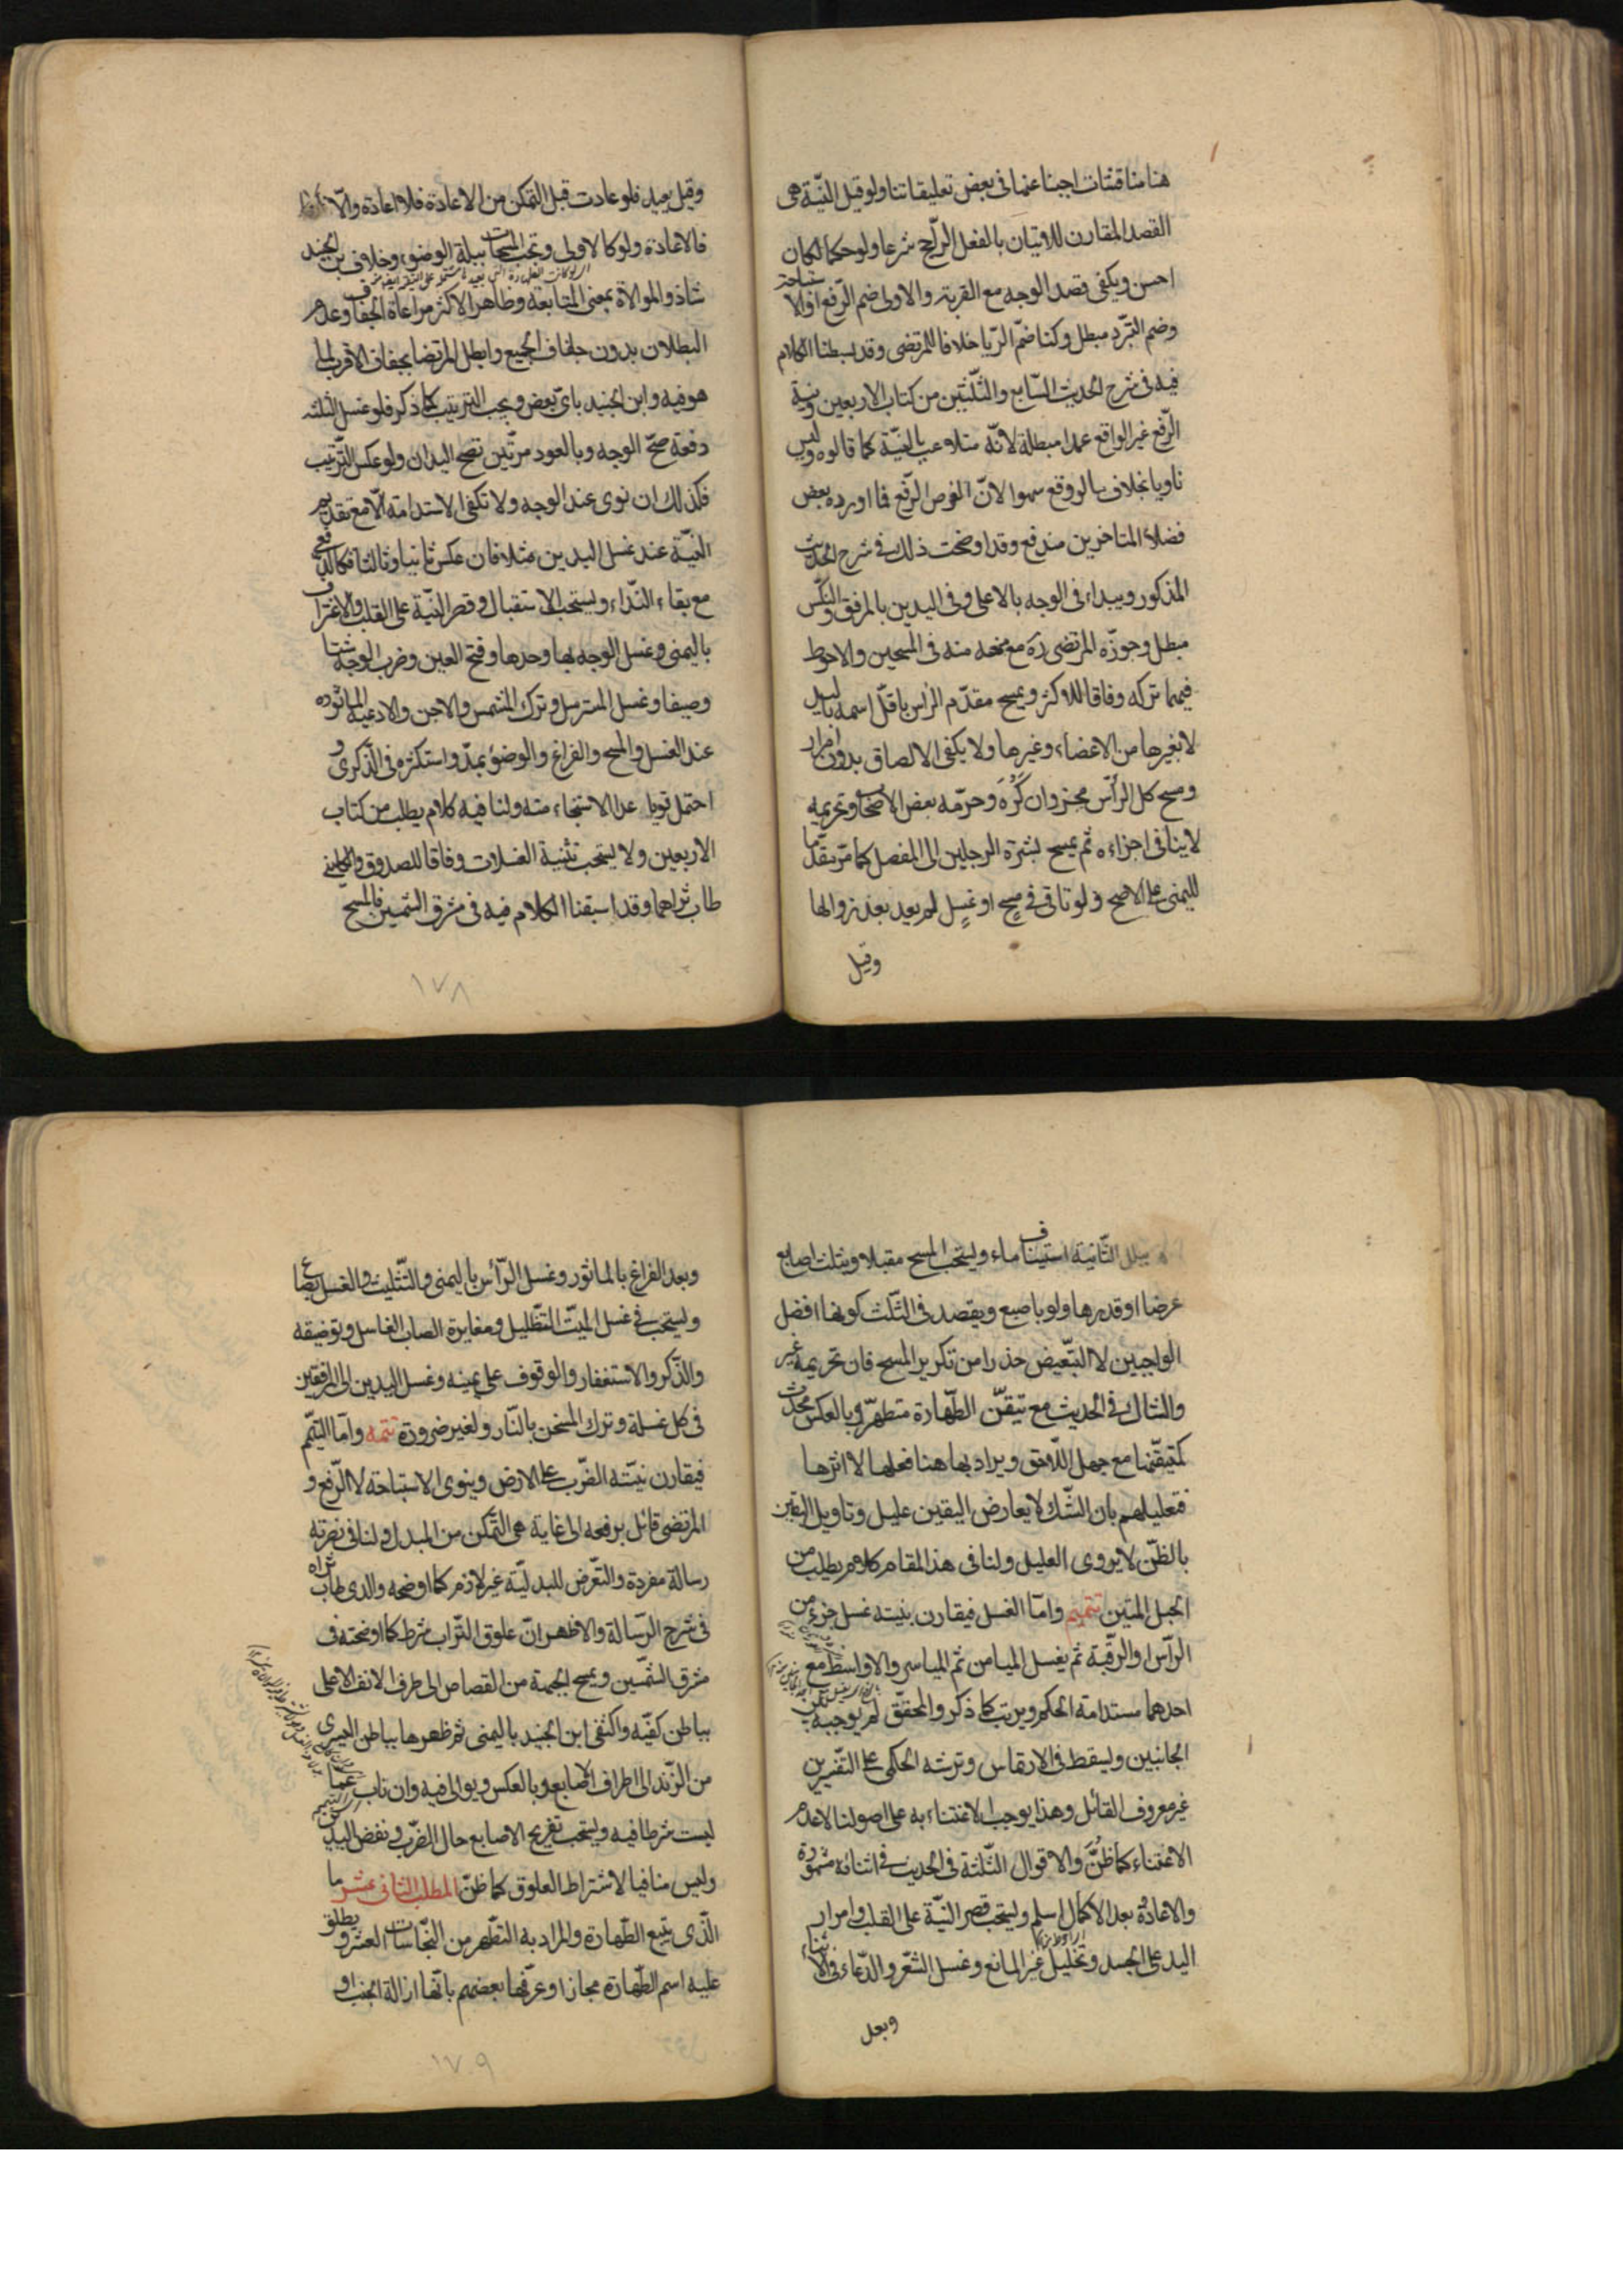 هنا مناقشات اجبنا عنها فى بعض تعليقاتنا ولو قيل النيّة هى
القصد المقارن للاتيان بالفعل الراجح شرعا ولو حكما لكان
احسن ويكفى قصد الوجه مع القربة والاولى ضم الرّفع او الاستباحة
وضم التبّرد مبطل وكذا ضمّ الرّيا خلافا للمرتضى وقد بسطنا الكلام
فيه فى شرح الحديث السّابع والثّلثين من كتاب الاربعين ونية
الرّفع غير الواقع عمدا مبطلة لانّه متلاعب بالنيّة كما قالوه وليس
ناويا بخلاف الوقع سهوا لانّ الغرض الرّفع فما اورده بعض
فضلاء المتاخرين مندفع وقد اوضحت ذلك فى شرح الحديث
المذكور ويبداء فى الوجه بالاعلى وفى اليدين بالمرفق والنكس
مبطل وجوزّه المرتضى ره مع منعه منه فى المسحين والاحوط
فيهما تركه وفاقا للاكثر ويمسح مقدّم الرأس باقلّ اسمه باليد
لا بغيرها من الاعضاء وغيرها ولا يكفى الالصاق بدون امرار
ومسح كل الرأس مجز وان كره وحرّمه بعض الاصحاب وتحريمه
لا ينافى اجزاءه ثم يمسح بشرة الرجلين الى المفصل كما مرّ مقدّما
لليمنى على الاصح ولو تاقى فى مسح او غسل لم يعد بعد زوالها
وقيل
وقيل يعيد فلو عادت قبل التمكن من الاعادة فلا اعادة والّا
فالاعادة ولو كالاولى وتجب المسحات ببلة الوضوء وخلاف بن الجنيد
شاذ والموالاة بمعنى المتابعة وظاهر الاكثر مراعاة الجفاف وعدم
البطلان بدون جفاف الجميع وابطل المرتضا بجفاف الاقرب لما
هو فيه وابن الجنيد باىّ بعض ويجب الترتيب كما ذكر فلو غسل الثلثه
دفعة صحّ الوجه وبالعود مرتّين تصح اليدان ولو عكس التّرتيب
فكذلك ان نوى عند الوجه ولا تكفى الاستدامة الّا مع تقديم
النيّة عند غسل اليدين مثلا فان عكس ثانيا وثالثا فكالدفعى
مع بقاء النّداء ويستحب الاستقبال وقصر النيّة على القلب والاغتراف
باليمنى وغسل الوجه بها وحدها وفتح العين وضرب الوجه شتا
وصيفا وغسل المسترسل وترك المشمس والاجن والادعية الماثوره
عند الغسل والمسح والفراغ والوضوء بمدّ واستكثره فى الذّكرى و
احتمل قويا عد الاستنجاء منه ولنا فيه كلام يطلب من كتاب
الاربعين ولا يستحب تثنية الغسلات وفاقا للصدوق والكلينى
طاب ثراهما وقد اسبقنا الكلام فيه فى مشرق الشمسين فالمسح
١٧٨
ببلل الثّانية استيناف ماء ويستحب المسح مقبلا وبثلث اصابع
عرضا او قدرها ولو باصبع ويقصد فى الثّلث كونها افضل
الواجبين لا التبّعيض حذرا من تكرير المسح فان تحريمه غير
والشاك فى الحديث مع تيقّن الطّهارة متطهّر وبالعكس محدث
كمتيقّنها مع جهل اللّاحق ويراد بها هنا فعلها لا اثرها
فتعليلهم بان الشّك لا يعارض اليقين عليل وتاويل اليقين
بالظنّ لا يروى الغليل ولنا فى هذا المقام كلام يطلب من
الحبل المتين تتميم وامّا الغسل فيقارن بنيته غسل جزء من
الرأس او الرقّبة ثم يغسل الميامن ثم المياسر والاواسط مع
احدهما مستدامة الحكم ويرتب كما ذكر والمحقّق لم يوجبه بين
الجانبين ويسقط فى الارتماس وترتبه الحكمى على التفّسيرين
غير معروف القائل وهذا يوجب الاعتناء به على اصولنا لا عدم
الاعتناء كما ظنّ والاقوال الثّلثة فى الحديث فى اثنائه مشهورة
والاعادة بعد الاكمال اسلم ويستحب قصر النيّة على القلب وامرار
اليد على الجسد وتخليل غير المانع وغسل الشّعر والدّعاء فى الاثناء
وبعد
وبعد الفراغ بالماثور وغسل الرّأس باليمنى والتّثليث والغسل بصاع
ويستحب فى غسل الميّت التظّليل ومغايرة الصاب الغاسل وتوضيقه
والذّكر والاستغفار والوقوف على يمينه وغسل اليدين الى المرفقين
فى كل غسلة وترك المسخن بالنّار ولغير ضرورة تتمه وامّا التيمّم
فيقارن نيّته الضّرب على الارض وينوى الاستباحة لا الرّفع و
المرتضى قائل برفعه الى غاية هى التمّكن من المبدل ولنا فى نصرته
رسالة مفردة والتّعرض للبدليّة غير لازم كما اوضحه والدى طاب ثراه
فى شرح الرّسالة والاظهر انّ علوق التّراب شرط كما اوضحته فى
مشرق الشمّسين ويمسح الجبهة من القصاص الى طرف الانف الاعلى
بباطن كفّيه واكتفى ابن الجنيد باليمنى ثم ظهرها بباطن اليسرى
من الزّند الى اطراف الاصابع وبالعكس ويوالى فيه وان ناب عما
ليست شرطا فيه ويستحب تفريج الاصابع حال الضّرب ونفض اليد
وليس منافيا لاشتراط العلوق كما ظنّ المطلب الثانى عشر ما
الّذى يتبع الطّهارة والمراد به التطّهر من النّجاسات العشر ويطلق
عليه اسم الطّهارة مجازا وعرّفها بعضهم بانّها ازالة الخبث او
١٧٩